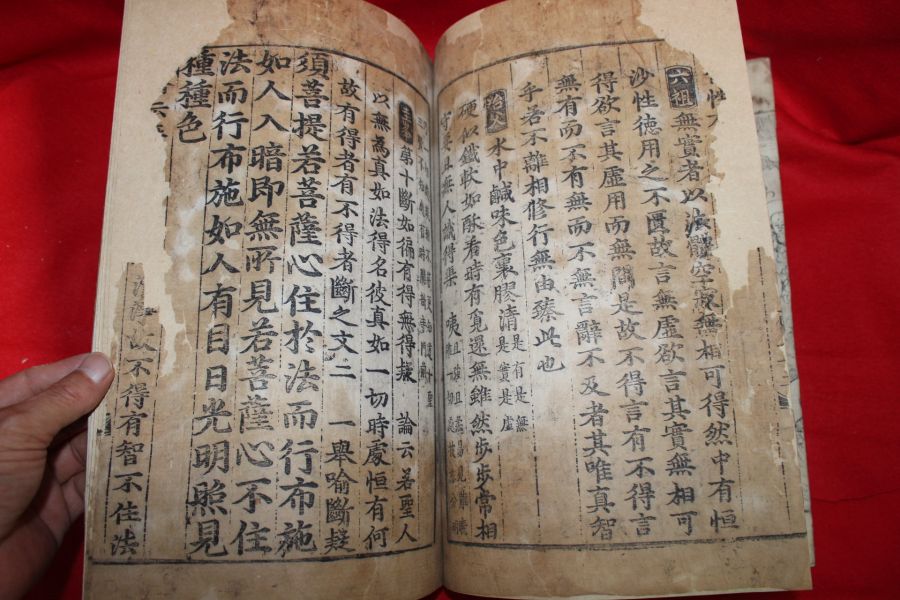 性
六祖 無實者以法體空寂無相可得然中有恒
沙性德用之不匱故言無虛欲言其實無相可
得欲言其虛用而無間是故不得言有不得言
無有而不有無而不無言辭不及者其唯真智
乎若不離相修行無由臻此也
冶父 水中鹹味色裏膠清 是有是無
是實是虛
硬似鐵軟如酥看時有覓還無雖然步步常相
守要且無人識得渠 咦
第十斷如徧有得無得疑 論云若聖人
以無為真如法得名彼真如一切時處恒有何
故有得者有不得者斷之文二 一舉喻斷疑
須菩提若菩薩心住於法而行布施
如人入暗即無所見若菩薩心不住
法而行布施如人有目日光明照見
種種色
以不得有智不住法